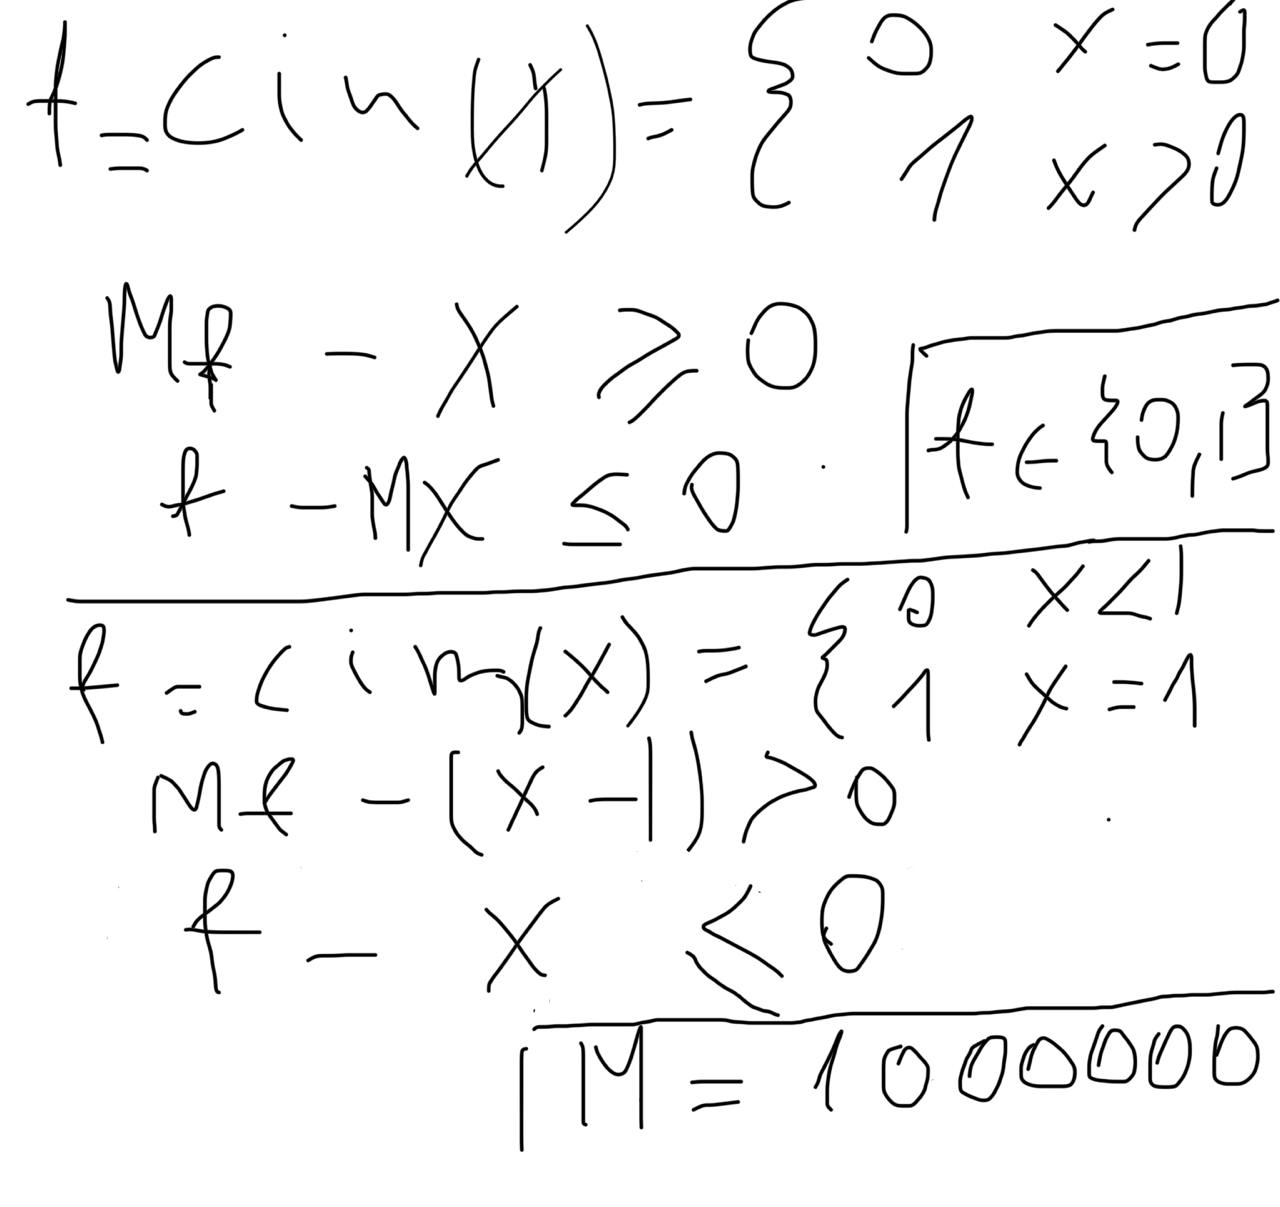 f = cin(x) = { 0 x = 0
1 x > 0
Mf - x ≥ 0
f - Mx ≤ 0
f ∈ {0,1}
f = cin(x) = { 0 x < 1
1 x = 1
Mf - (x - 1) > 0
f - x ≤ 0
M = 1000000